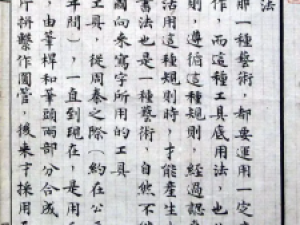 法
那一種藝術，都要運用一定
作，而這種工具底用法，也
則，遵循這種規則，經過認真
活用這種規則時，才能產生
書法也是一種藝術，自然不
國向來寫字所用的工具
工具 從周秦之際（約在公
年間），一直到現在，是用
，由筆桿和筆頭兩部分合成
片拼繫作圓管，後來才採用